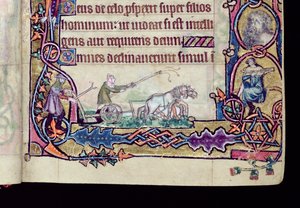 Deus de celo pspexit super filios
hominum: ut uideat si est intelli
gens aut requirens deum
Omnes declinauerunt simul i